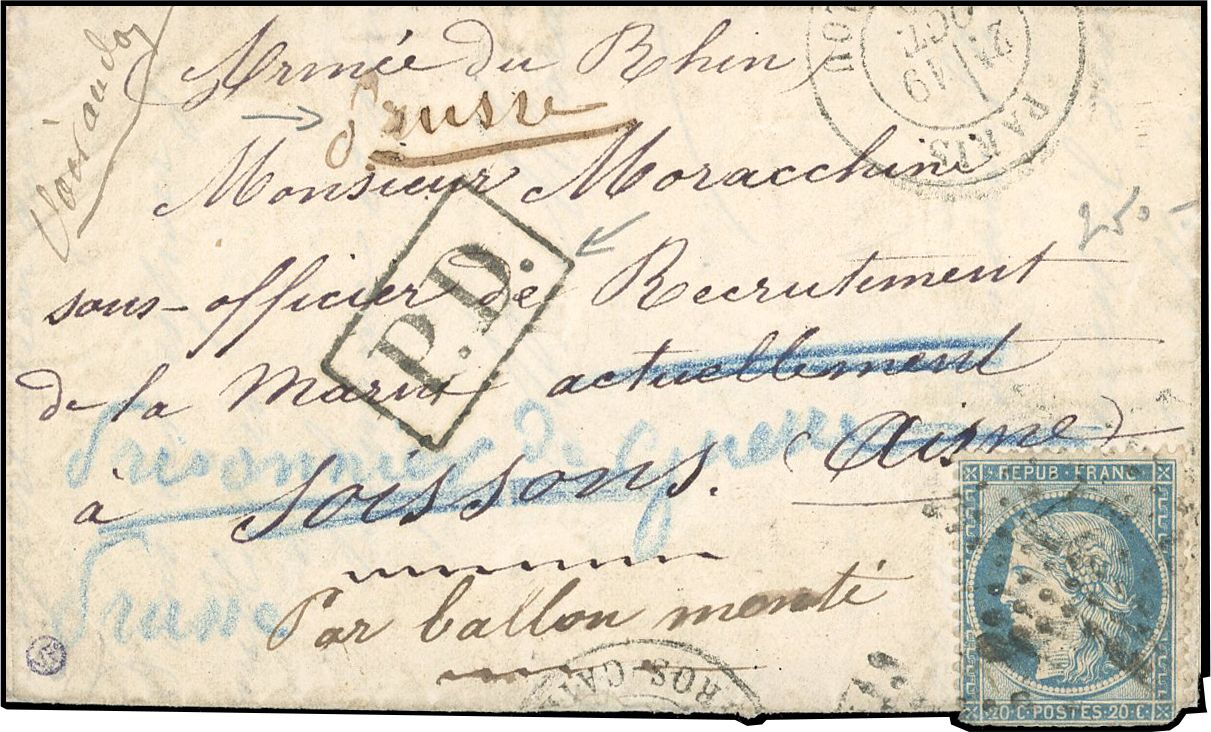 Armée du Rhin
Prusse
Monsieur Moracchini
sous-officier de Recrutement
de la Marine actuellement
Prisonnier de Guerre
à Soissons. (Aisne)
Prusse
Par ballon monté
P.D.
PARIS
21
OCT.
250-
REPUB·FRANC
20·C·POSTES·20·C·
ROS-CAI